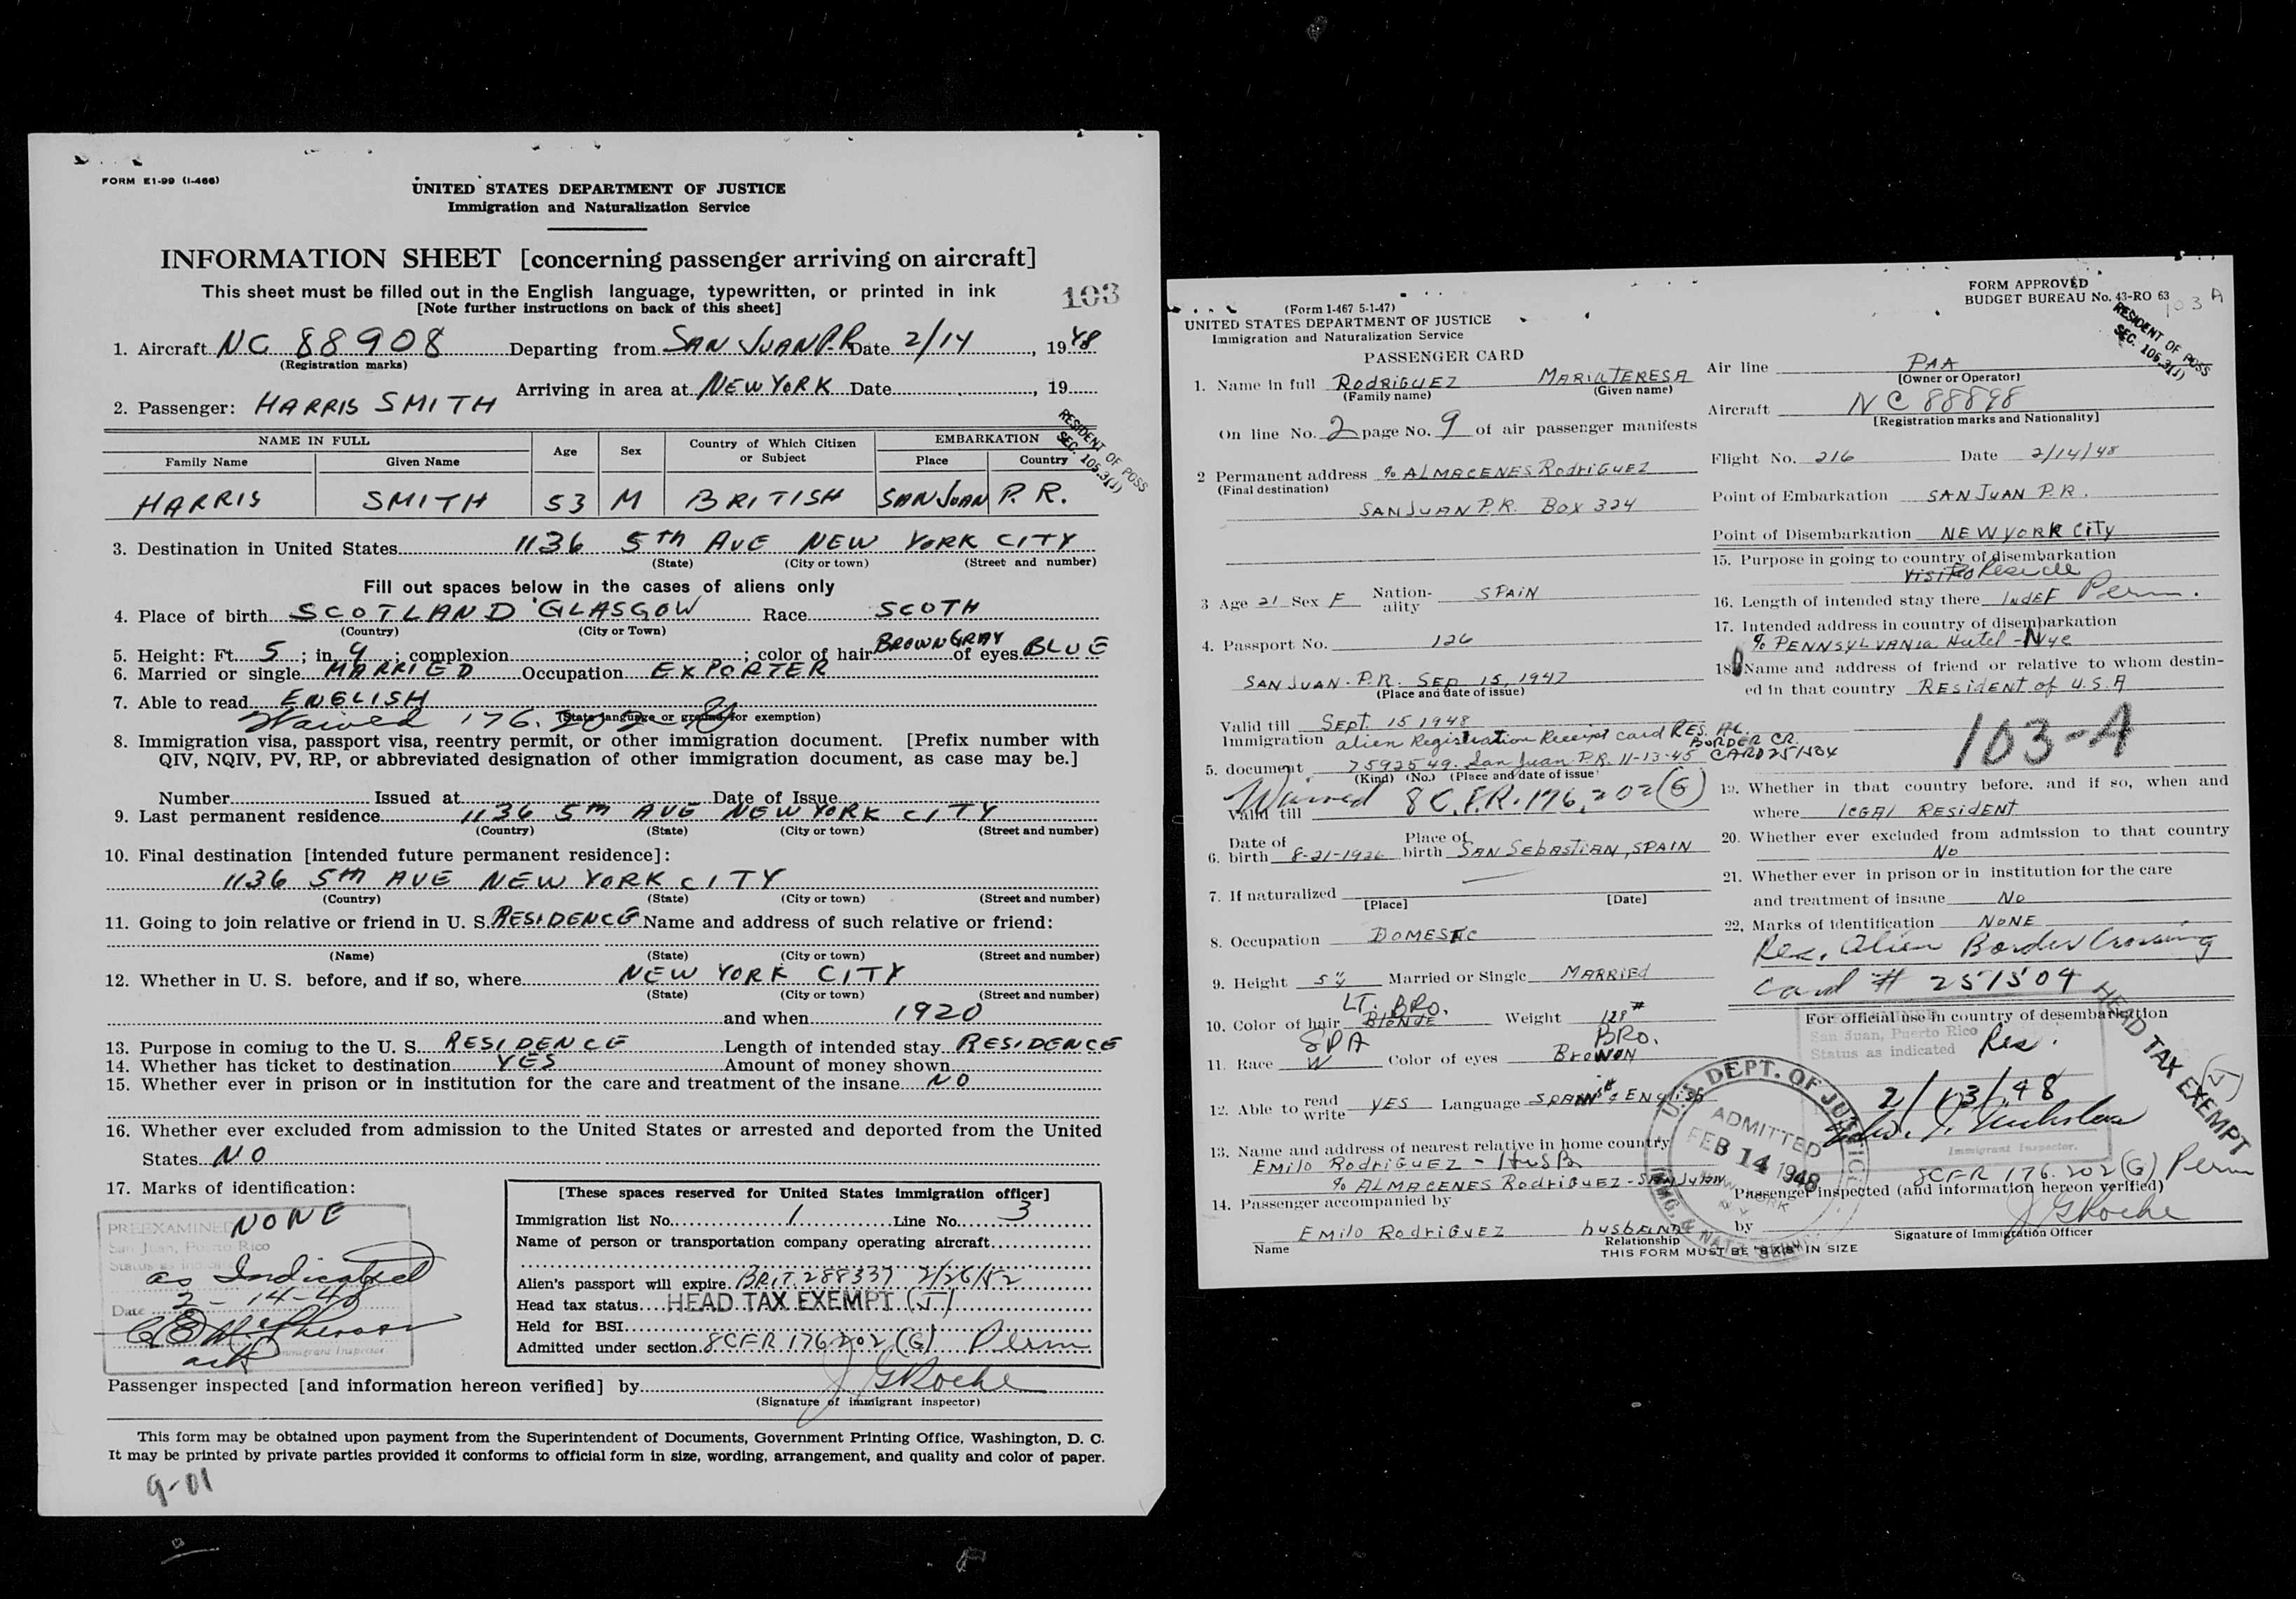 FORM E1-99 (I-466)
UNITED STATES DEPARTMENT OF JUSTICE
Immigration and Naturalization Service
INFORMATION SHEET [concerning passenger arriving on aircraft]
This sheet must be filled out in the English language, typewritten, or printed in ink
[Note further instructions on back of this sheet]
103
1. Aircraft NC 88908 Departing from SAN JUAN P.R. Date 2/14, 1948
(Registration marks)
Arriving in area at NEW YORK Date, 19
2. Passenger: HARRIS SMITH
RESIDENT OF POSS
SEC. 105.3(J)
NAME IN FULL Age Sex Country of Which Citizen or Subject EMBARKATION
Family Name Given Name Place Country
HARRIS SMITH 53 M BRITISH SAN JUAN P.R.
3. Destination in United States 1136 5TH AVE NEW YORK CITY
(State) (City or town) (Street and number)
Fill out spaces below in the cases of aliens only
4. Place of birth SCOTLAND GLASGOW Race SCOTH
(Country) (City or Town)
5. Height: Ft. 5; in 9; complexion; color of hair BROWN GRAY of eyes BLUE
6. Married or single MARRIED Occupation EXPORTER
7. Able to read ENGLISH
Waived 176.202
(State language or ground for exemption)
8. Immigration visa, passport visa, reentry permit, or other immigration document. [Prefix number with
QIV, NQIV, PV, RP, or abbreviated designation of other immigration document, as case may be.]
Number Issued at Date of Issue
9. Last permanent residence 1136 5TH AVE NEW YORK CITY
(Country) (State) (City or town) (Street and number)
10. Final destination [intended future permanent residence]:
1136 5TH AVE NEW YORK CITY
(Country) (State) (City or town) (Street and number)
11. Going to join relative or friend in U. S. RESIDENCE Name and address of such relative or friend:
(Name) (State) (City or town) (Street and number)
12. Whether in U. S. before, and if so, where NEW YORK CITY
(State) (City or town) (Street and number)
and when 1920
13. Purpose in coming to the U. S. RESIDENCE Length of intended stay RESIDENCE
14. Whether has ticket to destination YES Amount of money shown
15. Whether ever in prison or in institution for the care and treatment of the insane NO
16. Whether ever excluded from admission to the United States or arrested and deported from the United
States NO
17. Marks of identification:
NONE
PREEXAMINED
San Juan, Puerto Rico
Status as indicated
as Indicated
Date 2-14-48
Immigrant Inspector.
[These spaces reserved for United States immigration officer]
Immigration list No. 1 Line No. 3
Name of person or transportation company operating aircraft
Alien's passport will expire BRIT 288337 2/26/52
Head tax status HEAD TAX EXEMPT (J)
Held for BSI
Admitted under section 8CFR 176.202 (G) Perm
Passenger inspected [and information hereon verified] by J G Roche
(Signature of immigrant inspector)
This form may be obtained upon payment from the Superintendent of Documents, Government Printing Office, Washington, D. C.
It may be printed by private parties provided it conforms to official form in size, wording, arrangement, and quality and color of paper.
9-01
(Form I-467 5-1-47)
UNITED STATES DEPARTMENT OF JUSTICE
Immigration and Naturalization Service
PASSENGER CARD
1. Name in full RODRIGUEZ MARIA TERESA
(Family name) (Given name)
On line No. 2 page No. 9 of air passenger manifests
2 Permanent address % ALMACENES RODRIGUEZ
(Final destination)
SAN JUAN P.R. BOX 324
3 Age 21 Sex F Nationality SPAIN
4. Passport No. 126
SAN JUAN. P.R. SEP 15, 1947
(Place and date of issue)
Valid till SEPT. 15 1948
5. Immigration document alien Registration Receipt card RES. AL.
BORDER CR.
7592549. San Juan P.R. 11-13-45 CARD 251504
(Kind) (No.) (Place and date of issue)
Waived 8 C.F.R. 176.202 (G)
Valid till
6. Date of birth 8-21-1926 Place of birth SAN SEBASTIAN, SPAIN
7. If naturalized
[Place] [Date]
8. Occupation DOMESTIC
9. Height 5'4 Married or Single MARRIED
LT. BRO.
10. Color of hair BLONDE Weight 128#
SPA BRO.
11. Race W Color of eyes BROWN
12. Able to read write YES Language SPANISH & ENGLISH
13. Name and address of nearest relative in home country
EMILO RODRIGUEZ - HUSB.
% ALMACENES RODRIGUEZ - SAN JUAN
14. Passenger accompanied by
EMILO RODRIGUEZ husbAND
Name Relationship
THIS FORM MUST BE "8X5" IN SIZE
FORM APPROVED
BUDGET BUREAU No. 43-RO 63
103 A
RESIDENT OF POSS
SEC. 105.3(J)
Air line PAA
[Owner or Operator]
Aircraft NC 88898
[Registration marks and Nationality]
Flight No. 216 Date 2/14/48
Point of Embarkation SAN JUAN P.R.
Point of Disembarkation NEW YORK CITY
15. Purpose in going to country of disembarkation
VISIT To Reside
16. Length of intended stay there INDEF Perm.
17. Intended address in country of disembarkation
% PENNSYLVANIA Hotel - Nyc
18. Name and address of friend or relative to whom destined in that country RESIDENT of U.S.A
103-A
19. Whether in that country before, and if so, when and
where LEGAL RESIDENT
20. Whether ever excluded from admission to that country
NO
21. Whether ever in prison or in institution for the care
and treatment of insane NO
22. Marks of identification NONE
Res. Alien Border Crossing
Card # 251504
HEAD TAX EXEMPT (J)
For official use in country of desembarkation
San Juan, Puerto Rico
Status as indicated Res.
2/13/48
Immigrant Inspector.
U.S. DEPT. OF JUSTICE
ADMITTED
FEB 14 1948
NEW YORK
N.Y.
8CFR 176.202 (G) Perm
Passenger inspected (and information hereon verified)
by J G Roche
Signature of Immigration Officer